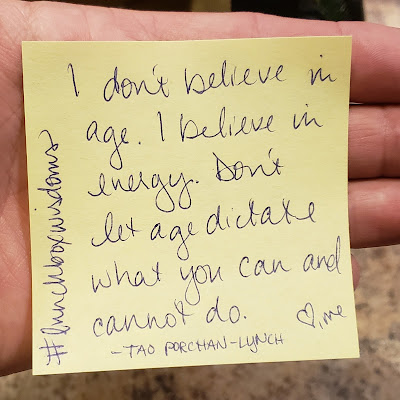 I don't believe in
age. I believe in
energy. Don't
let age dictate
what you can and
cannot do.
♡, me
-TAO PORCHAN-LYNCH
#lunchboxwisdoms